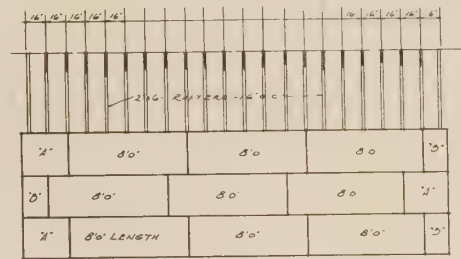 16" 16" 16" 16" 16" 16 16" 16" 16" 6"
2"x6" RAFTERS - 16" O.C.
"A" 8'0" 8'0 8'0 "B"
"B" 8'0" 8'0 8'0 "A"
"A" 8'0" LENGTH 8'0" 8'0" "B"